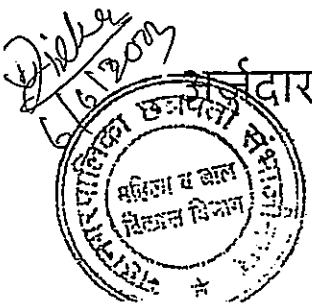 6/6/2003
अर्जदार
महानगरपालिका छत्रपती संभाजीनगर
महिला व बाल
विकास विभाग